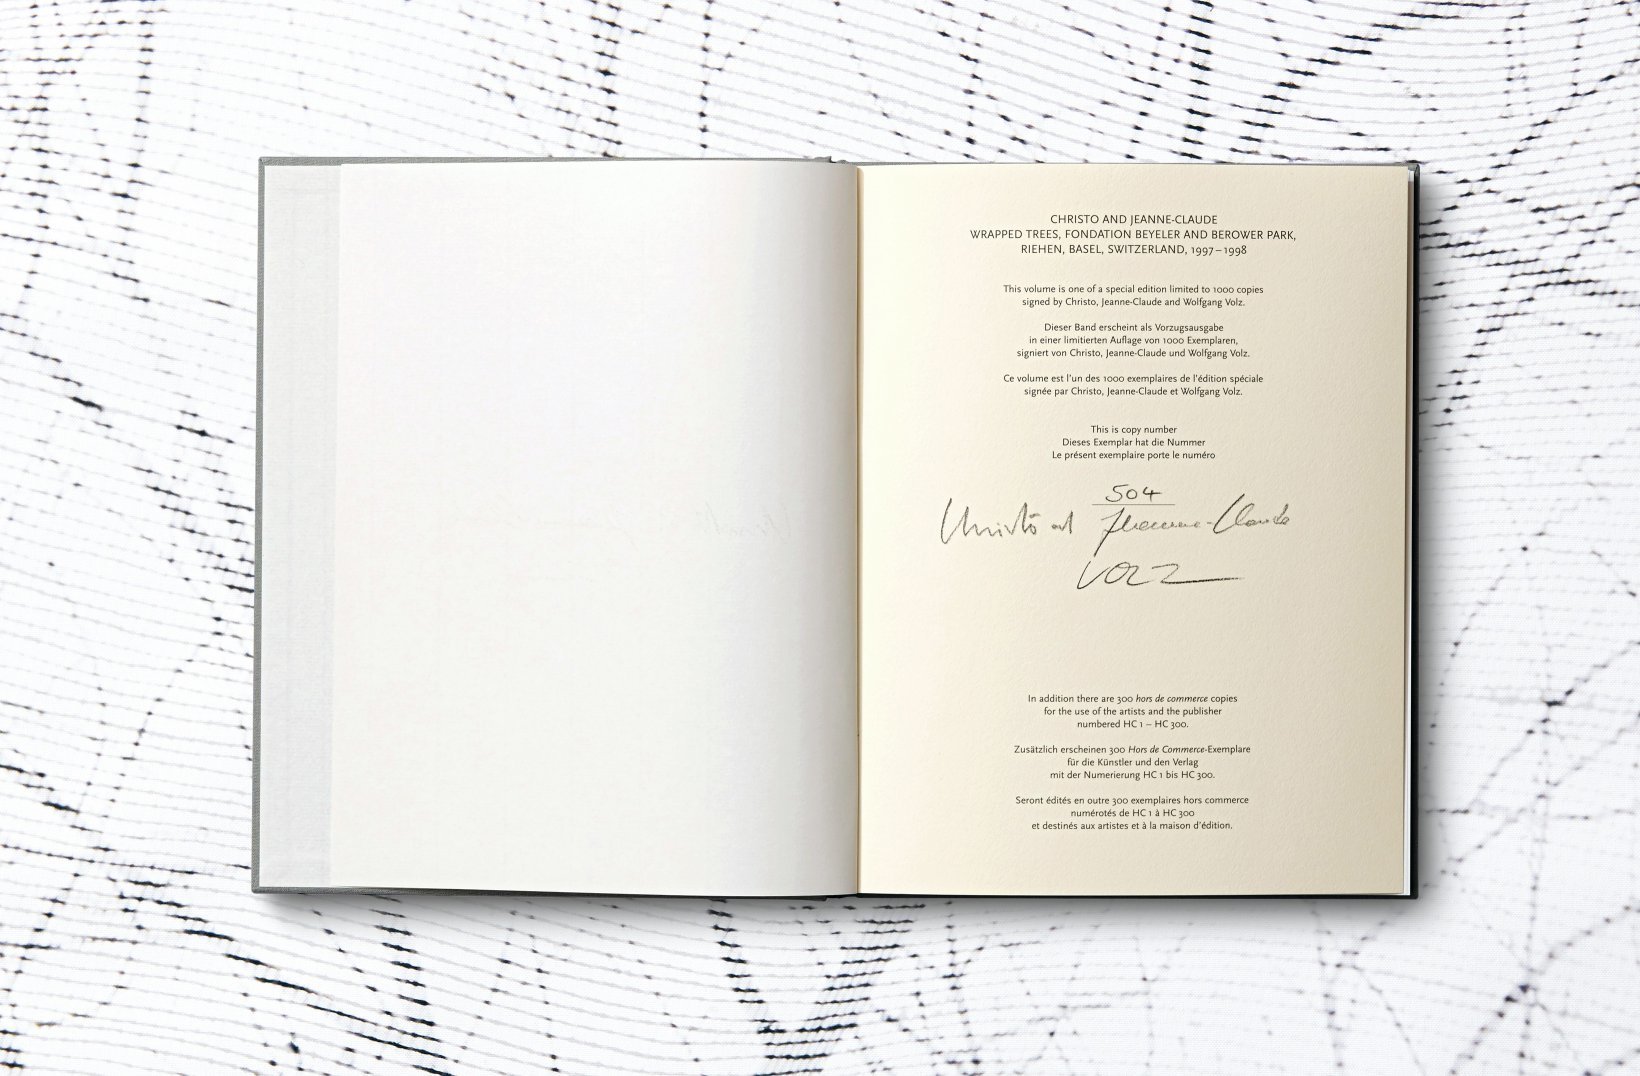 CHRISTO AND JEANNE-CLAUDE
WRAPPED TREES, FONDATION BEYELER AND BEROWER PARK,
RIEHEN, BASEL, SWITZERLAND, 1997–1998
This volume is one of a special edition limited to 1000 copies
signed by Christo, Jeanne-Claude and Wolfgang Volz.
Dieser Band erscheint als Vorzugsausgabe
in einer limitierten Auflage von 1000 Exemplaren,
signiert von Christo, Jeanne-Claude und Wolfgang Volz.
Ce volume est l'un des 1000 exemplaires de l'édition spéciale
signée par Christo, Jeanne-Claude et Wolfgang Volz.
This is copy number
Dieses Exemplar hat die Nummer
Le présent exemplaire porte le numéro
504
Christo and Jeanne-Claude
VOLZ
In addition there are 300 hors de commerce copies
for the use of the artists and the publisher
numbered HC 1 – HC 300.
Zusätzlich erscheinen 300 Hors de Commerce-Exemplare
für die Künstler und den Verlag
mit der Numerierung HC 1 bis HC 300.
Seront édités en outre 300 exemplaires hors commerce
numérotés de HC 1 à HC 300
et destinés aux artistes et à la maison d'édition.